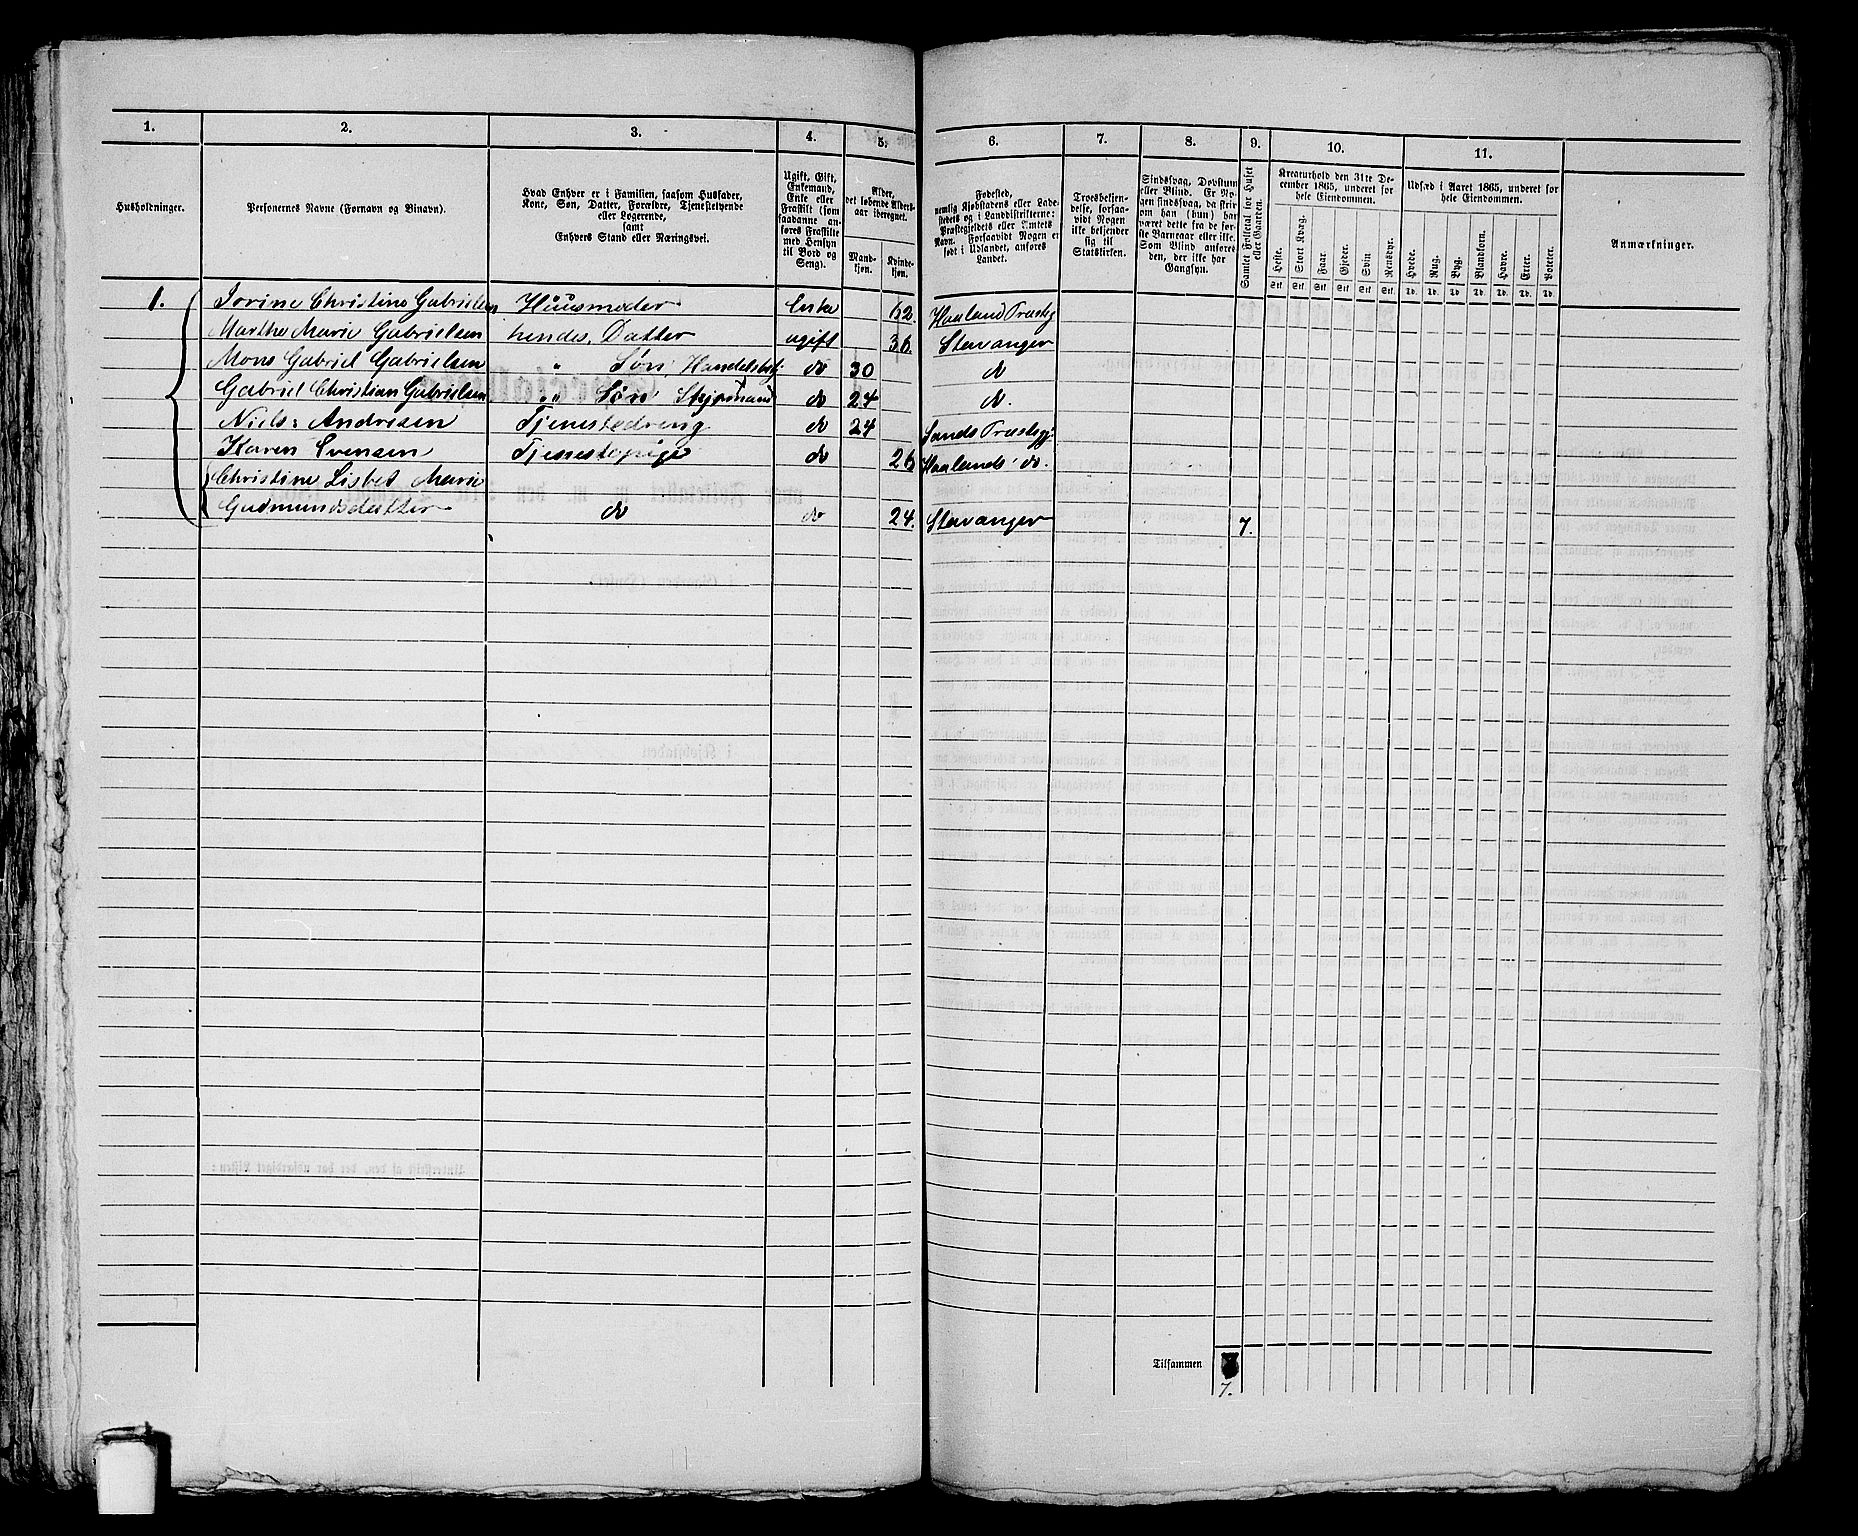 1. 2. 3. 4. 5. 6. 7. 8. 9. 10. 11.
Husholdninger.
Personernes Navne (Fornavn og Binavn).
Hvad Enhver er i Familien, saasom Husfader,
Kone, Søn, Datter, Forældre, Tjenestetyende
eller Logerende,
samt
Enhvers Stand eller Næringsvei.
Ugift, Gift,
Enkemand,
Enke eller
Fraskilt (som
saadanne an-
føres Fraskilte
med Hensyn
til Bord og
Seng).
Alder,
det løbende Alders-
aar iberegnet.
Mand-
kjøn.
Kvinde-
kjøn.
Fødested,
nemlig Kjøbstadens eller Lade-
stedets og i Landdistrikterne:
Præstegjeldets eller Amtets
Navn. Forsaavidt Nogen er
født i Udlandet, anføres
Landet.
Troesbekjen-
delse, forsaa-
vidt Nogen
ikke bekjender
sig til
Statskirken.
Sindssvag, Døvstum
eller Blind. Er No-
gen sindssvag, da skri-
ves om han (hun) har
været dette fra de før-
ste Barneaar eller ikke.
Som Blind anføres
den, der ikke har
Gangsyn.
Samlet Folketal for Huset
eller Gaarden.
Kreaturhold den 31te De-
cember 1865, underet for
hele Eiendommen.
Heste. Stort Kvæg. Faar. Gjeder. Svin. Rensdyr.
Stk. Stk. Stk. Stk. Stk. Stk.
Udsæd i Aaret 1865, underet for
hele Eiendommen.
Hvede. Rug. Byg. Blandkorn. Havre. Erter. Poteter.
Td. Td. Td. Td. Td. Td. Td.
Anmærkninger.
1. Jorine Christine Gabrielsen Huusmoder Enke 62. Haaland Præstg
Marthe Marie Gabrielsen hendes Datter ugift 36. Stavanger
Mons Gabriel Gabrielsen " Søn, Handelsbetj. do 30 do
Gabriel Christian Gabrielsen " Søn Skipsmand do 24 do.
Niels Andresen Tjenestedreng do 24 Sands Præstegj.
Karen Svensen Tjenestepige do 26 Haalands do.
Christine Lisbet Marie
Gudmundsdatter do do 24. Stavanger 7.
Tilsammen
7.